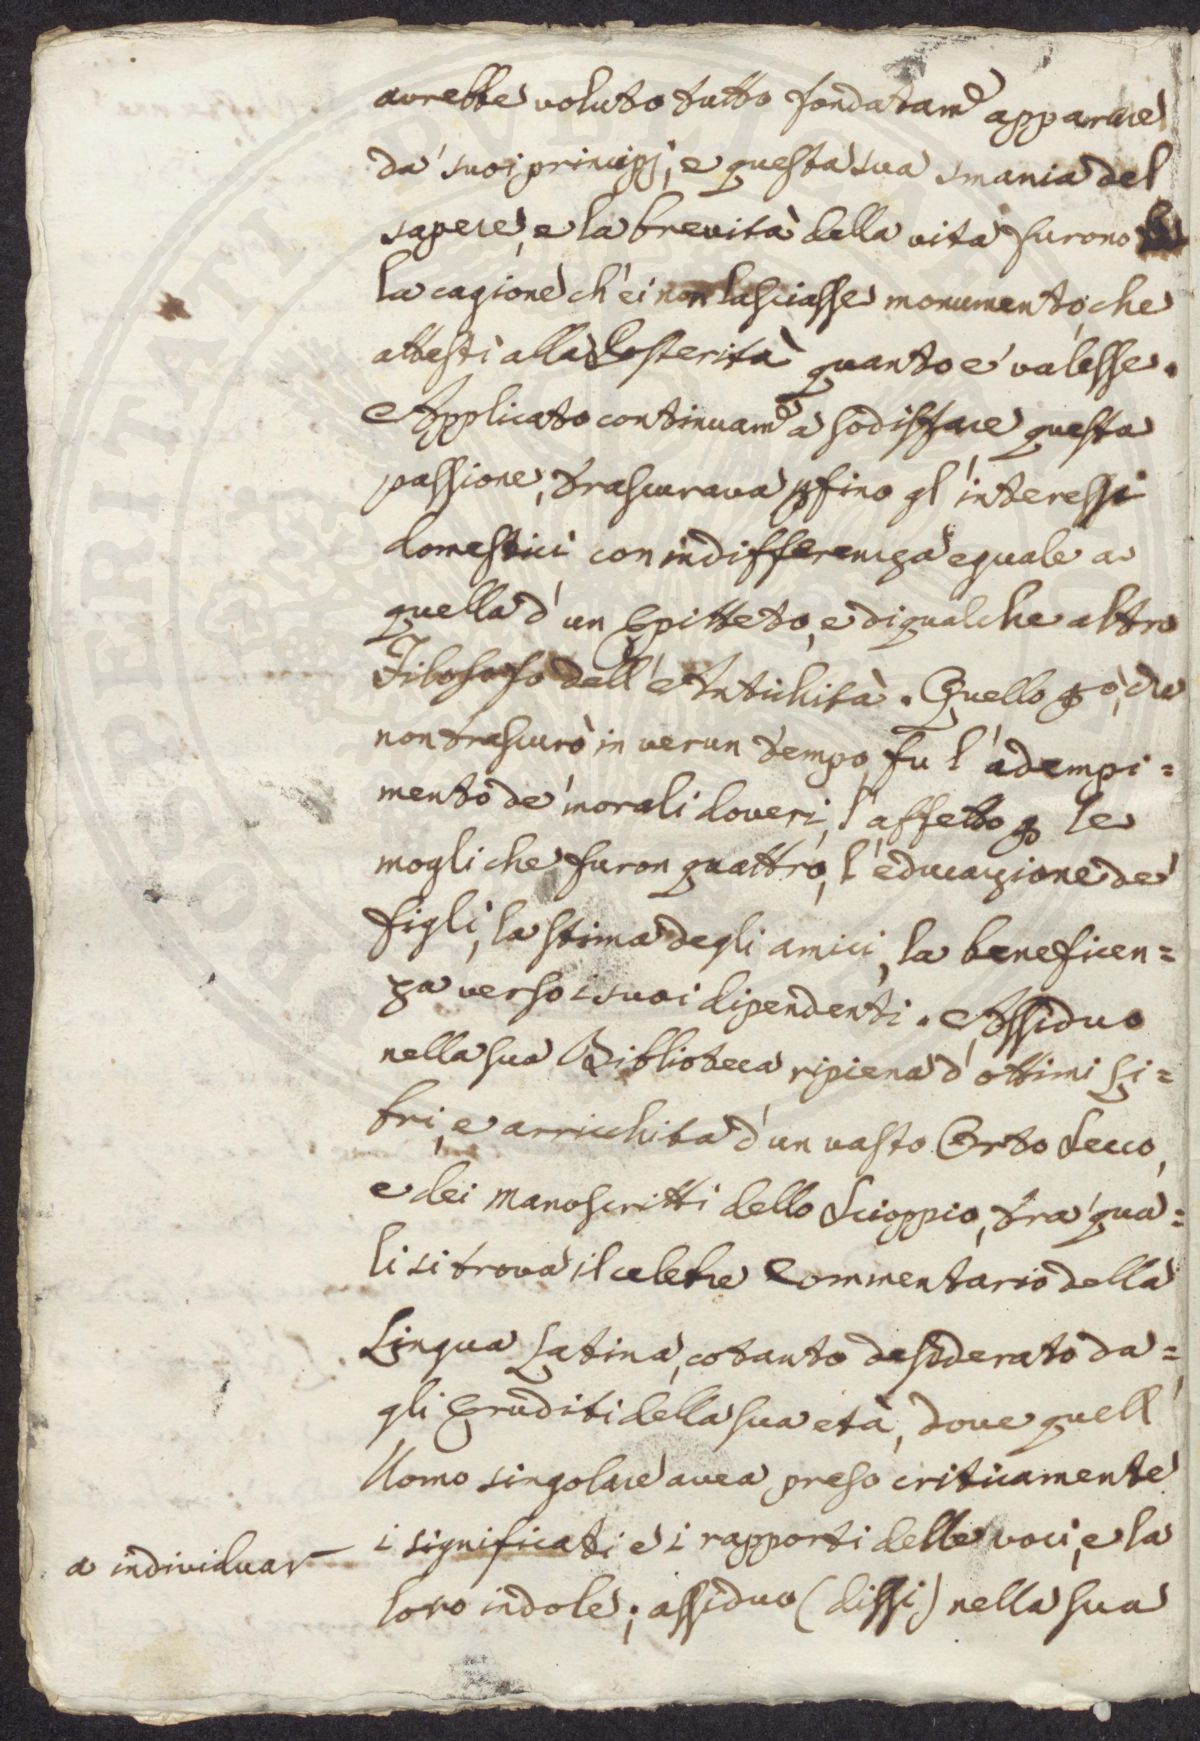 avrebbe voluto tutto fondatam.e apparare
da' suoi principj, e questa sua smania del
sapere, e la brevità della vita furono
la cagione ch'ei non lasciasse monumento, che
attesti alla Posterità quanto e' valesse.
Applicato continuam.e a sodisfare questa
passione, trascurava pfino gl'interessi
domestici con indifferenza eguale a
quella d'un Epitteto, e di qualche altro
Filosofo dell'Antichità. Quello pò, che
non trascurò in verun tempo, fu l'adempi=
mento de' morali doveri, l'affetto p le
mogli che furon quattro, l'educazione de'
figli, la stima degli amici, la beneficen=
za verso i suoi dipendenti. Assiduo
nella sua Biblioteca ripiena d'ottimi Li=
bri, e arricchita d'un vasto Orto Secco,
e dei Manoscritti dello Scioppio, tra' qua=
li si trova il celebre Commentario della
Lingua Latina, cotanto desiderato da=
gli Eruditi della sua età, dove quell'
Uomo singolare avea preso criticamente
a individuar i significati e i rapporti delle voci, e la
loro indole; assiduo (dissi) nella sua
PROSPERITATI PUBLICAE